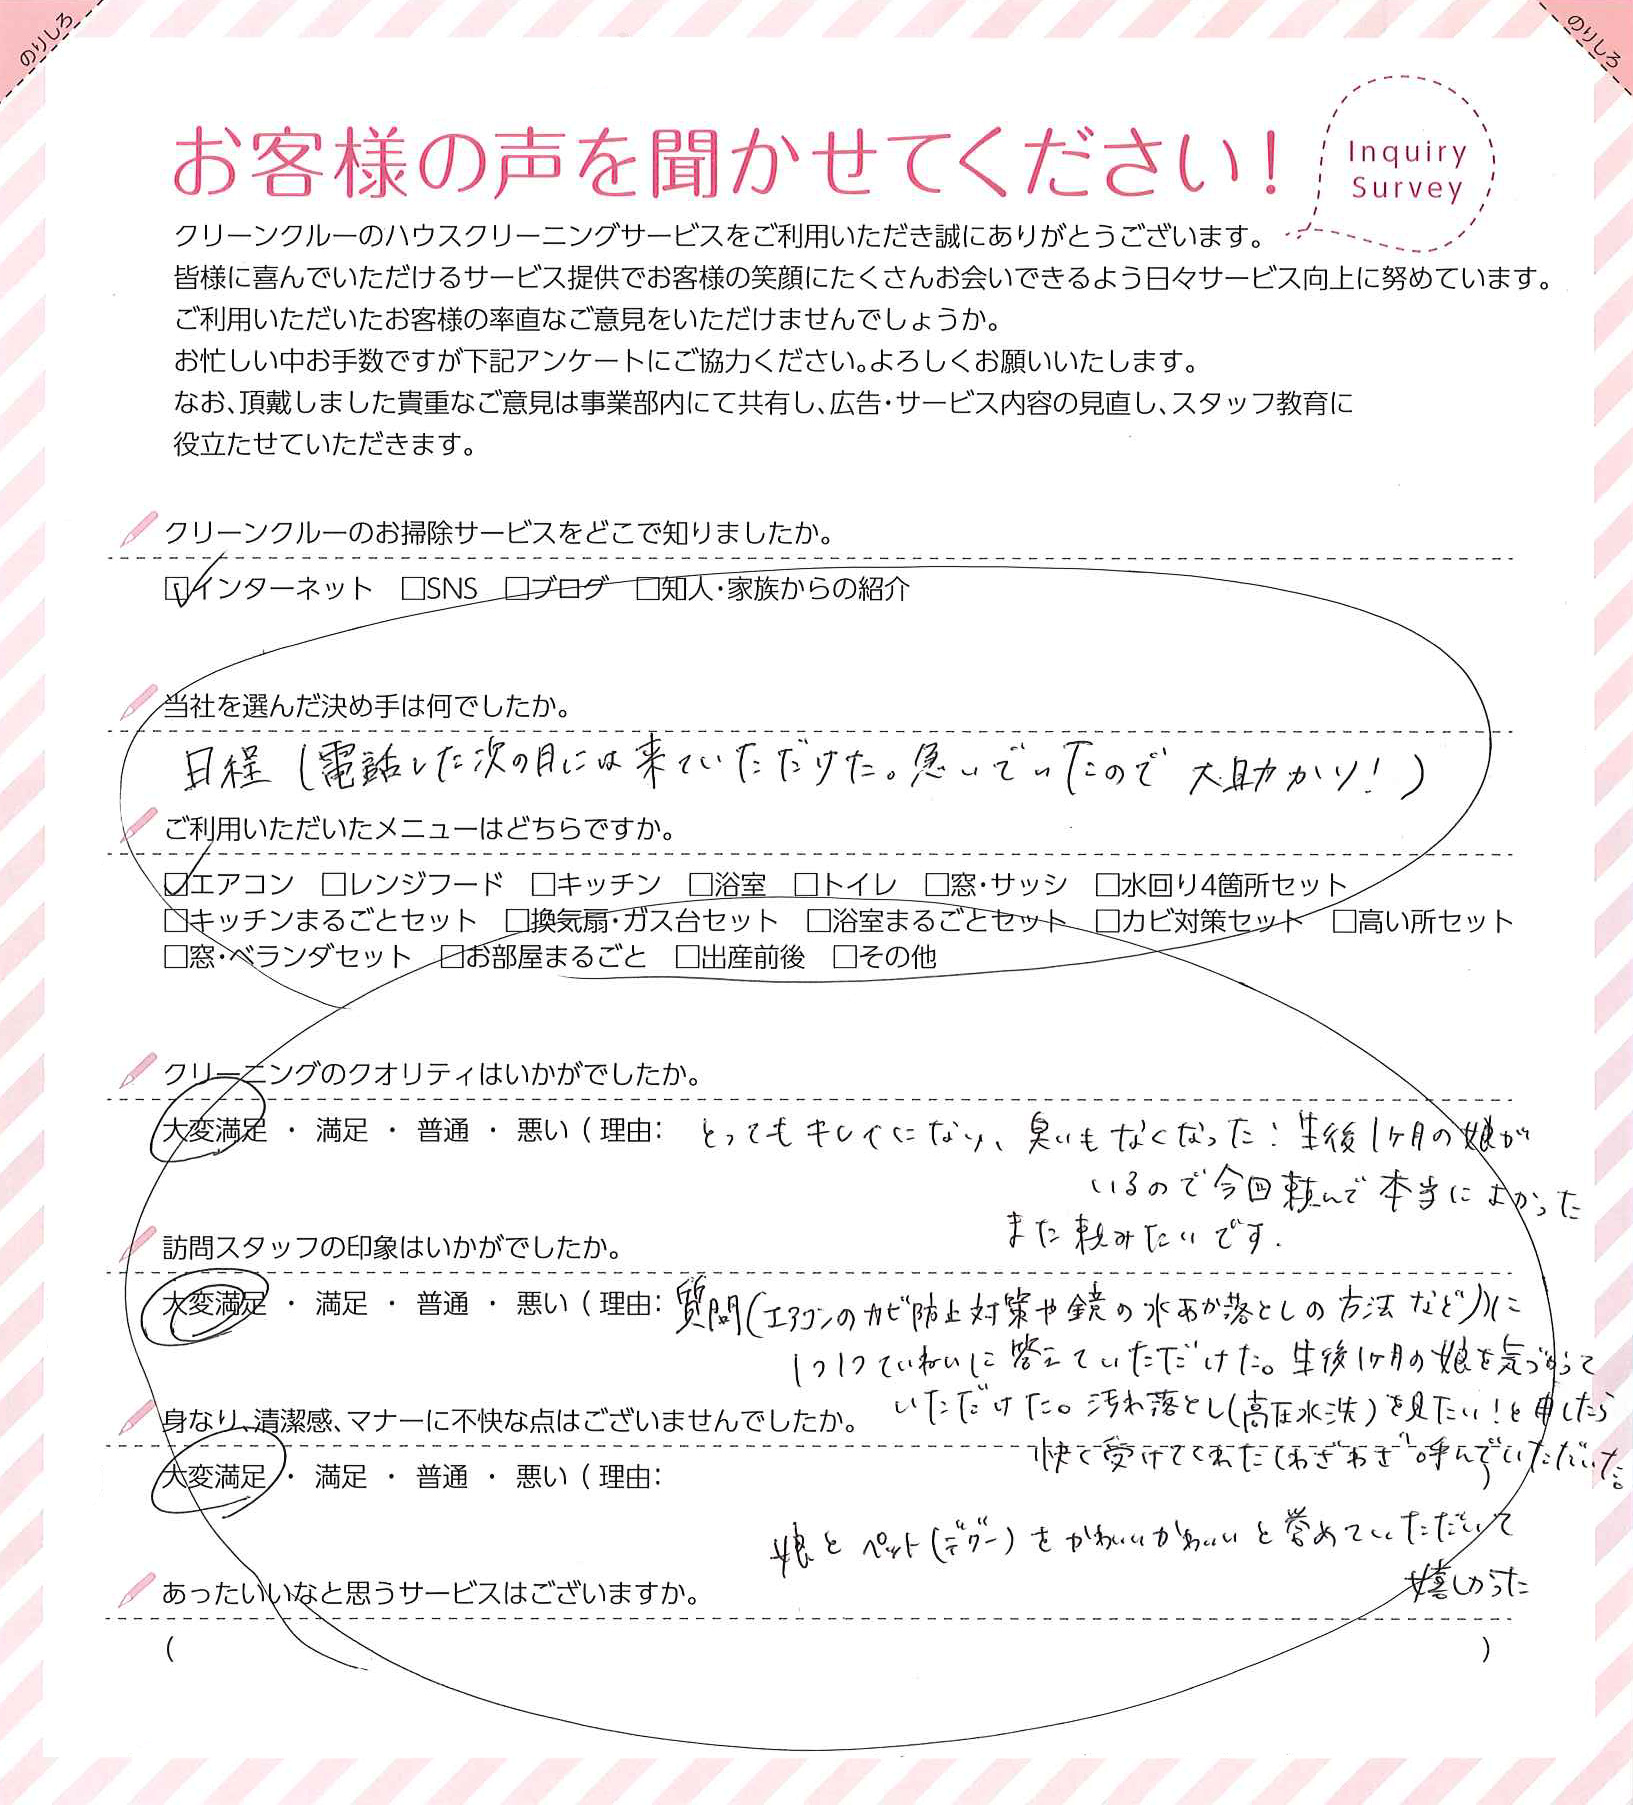 のりしろ
のりしろ
お客様の声を聞かせてください！
Inquiry
Survey
クリーンクルーのハウスクリーニングサービスをご利用いただき誠にありがとうございます。
皆様に喜んでいただけるサービス提供でお客様の笑顔にたくさんお会いできるよう日々サービス向上に努めています。
ご利用いただいたお客様の率直なご意見をいただけませんでしょうか。
お忙しい中お手数ですが下記アンケートにご協力ください。よろしくお願いいたします。
なお、頂戴しました貴重なご意見は事業部内にて共有し、広告・サービス内容の見直し、スタッフ教育に
役立たせていただきます。
クリーンクルーのお掃除サービスをどこで知りましたか。
☑インターネット □SNS □ブログ □知人・家族からの紹介
当社を選んだ決め手は何でしたか。
日程（電話した次の日には来ていただけた。急いでいたので 大助かり！）
ご利用いただいたメニューはどちらですか。
☑エアコン □レンジフード □キッチン □浴室 □トイレ □窓・サッシ □水回り4箇所セット
□キッチンまるごとセット □換気扇・ガス台セット □浴室まるごとセット □カビ対策セット □高い所セット
□窓・ベランダセット □お部屋まるごと □出産前後 □その他
クリーニングのクオリティはいかがでしたか。
大変満足 ・ 満足 ・ 普通 ・ 悪い（ 理由： とってもキレイになり、臭いもなくなった：生後1ヶ月の娘が
いるので今回頼んで本当によかった
また頼みたいです.
訪問スタッフの印象はいかがでしたか。
大変満足 ・ 満足 ・ 普通 ・ 悪い（ 理由： 質問（エアコンのカビ防止対策や鏡の水あか落としの方法など）に
1つ1つていねいに答えていただけた。生後1ヶ月の娘を気づかって
いただけた。汚れ落とし（高圧水洗）を見たい！と申したら
身なり、清潔感、マナーに不快な点はございませんでしたか。
快く受けてくれた（わざわざ呼んでいただいた。）
大変満足 ・ 満足 ・ 普通 ・ 悪い（ 理由：
娘とペット（デグー）をかわいいかわいいと誉めていただいて
嬉しかった
あったいいなと思うサービスはございますか。
（ ）